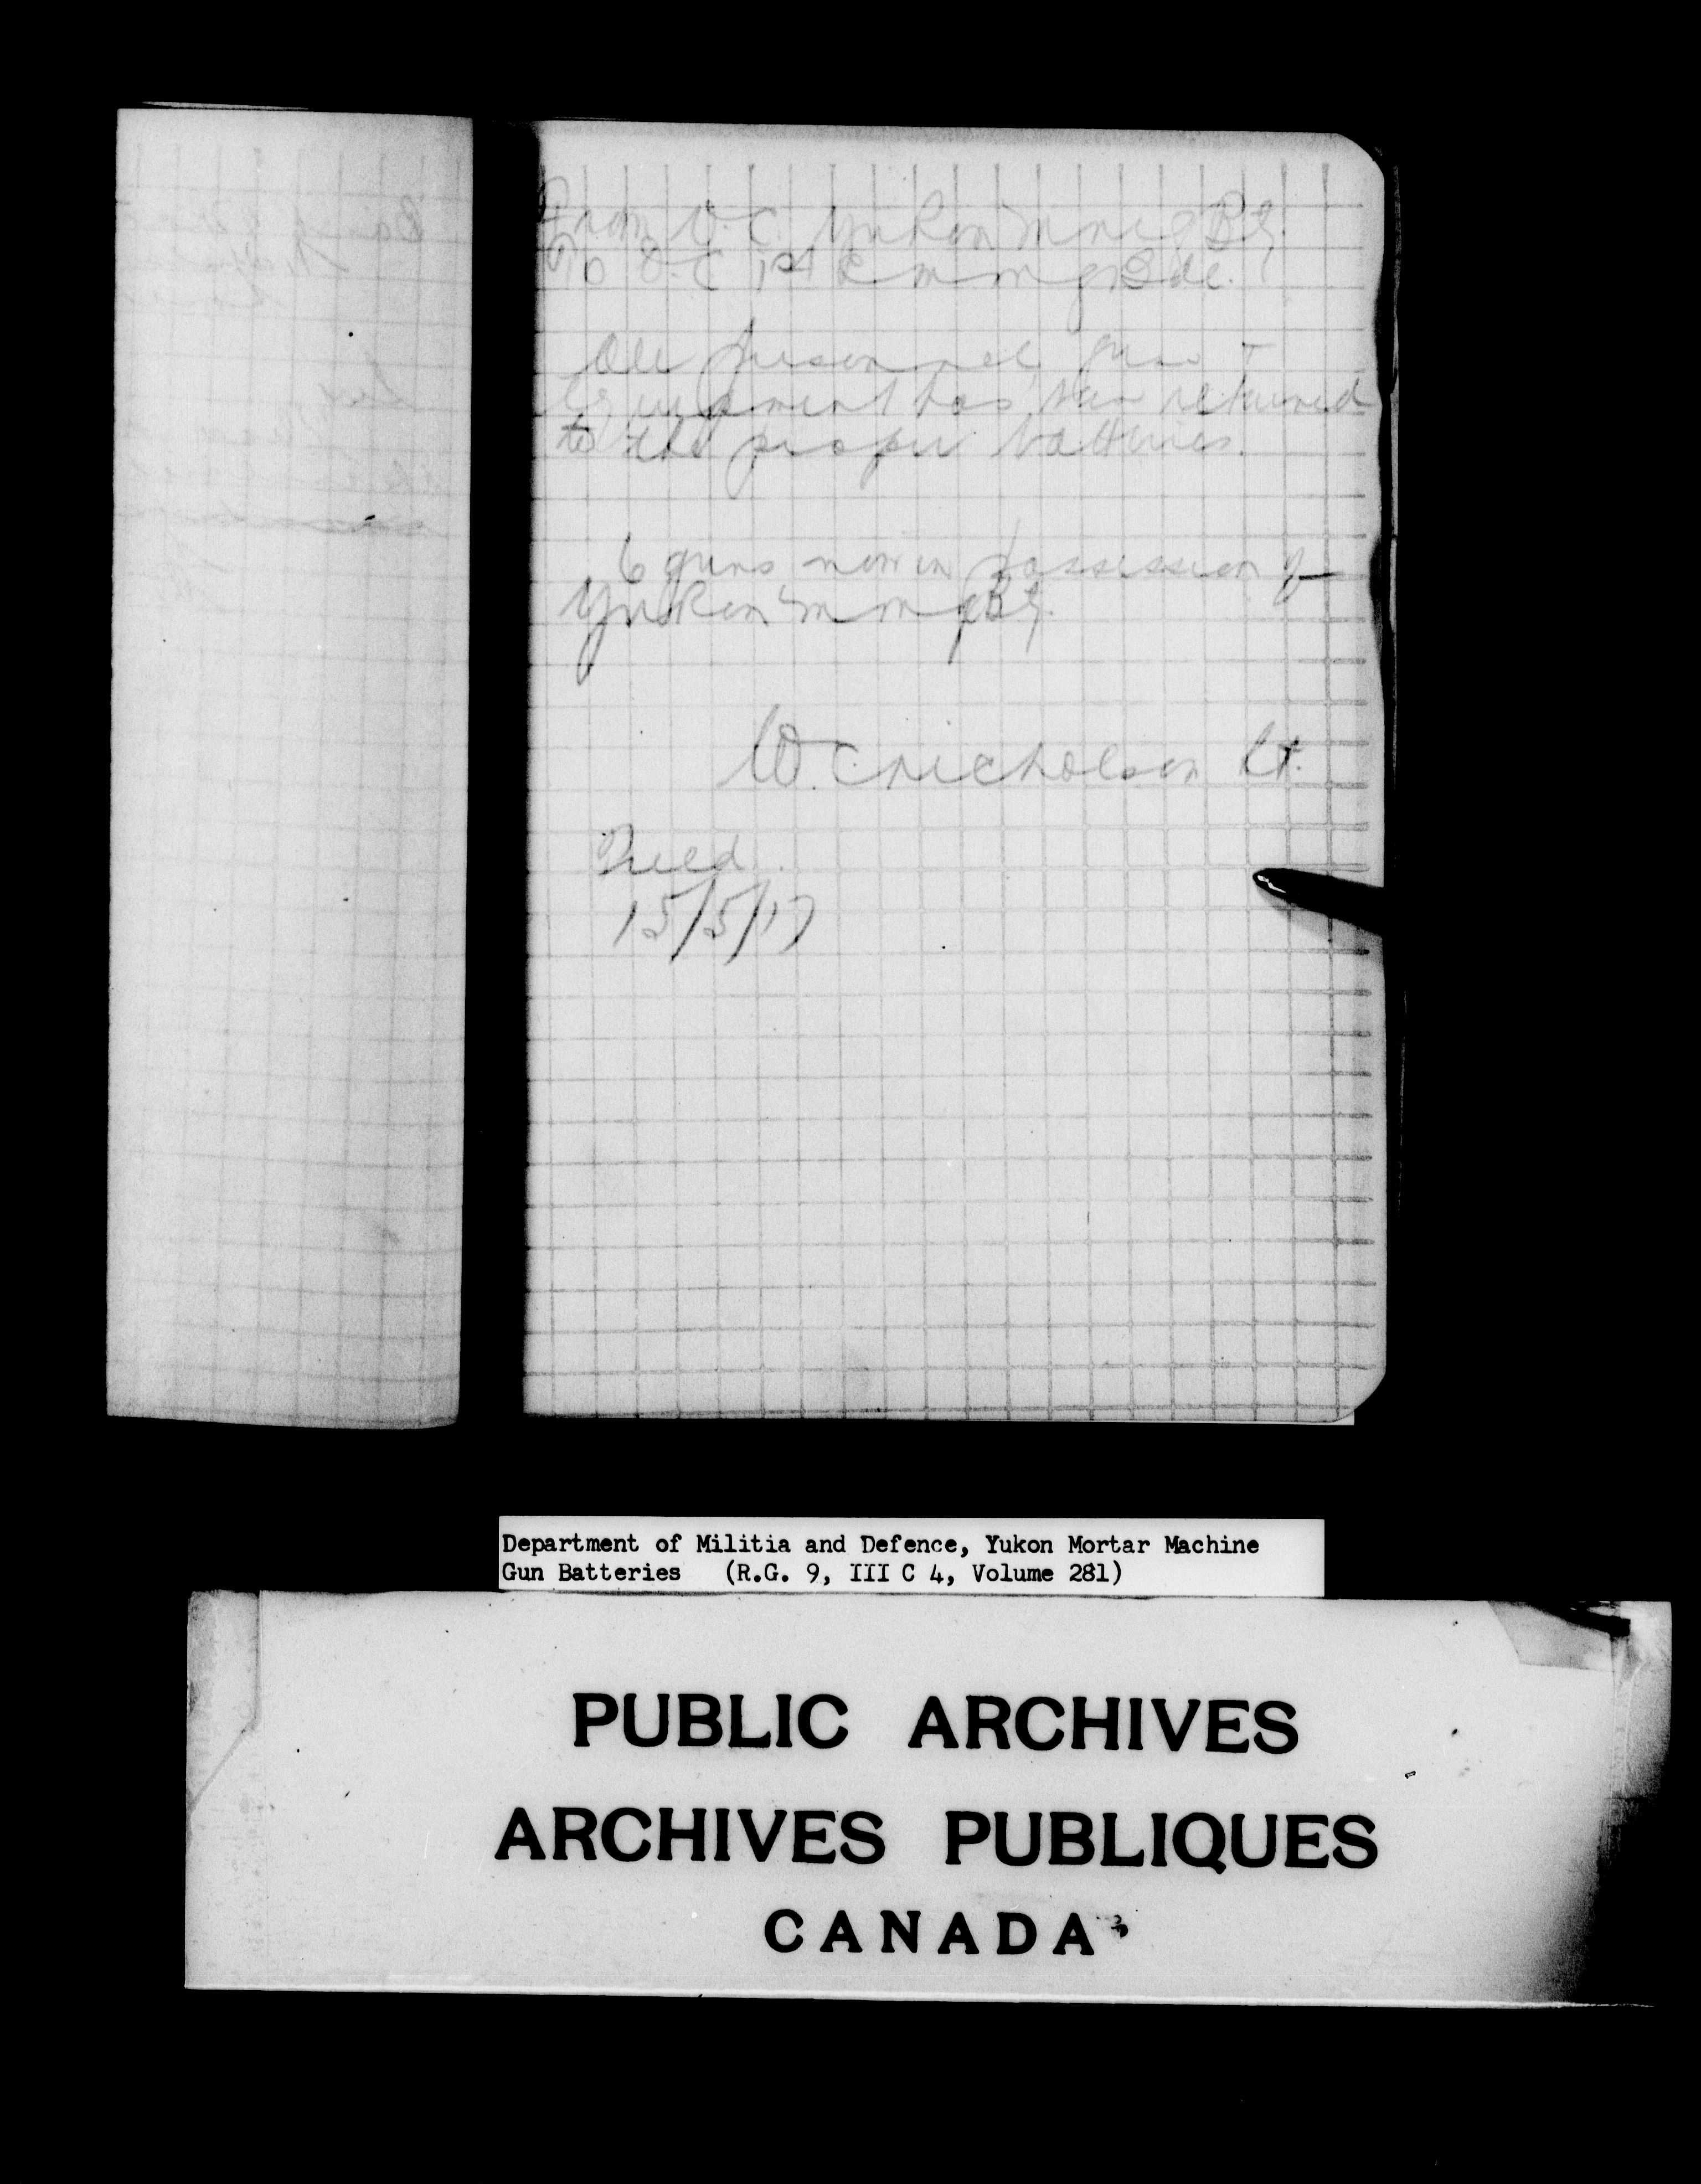 From O.C. Yukon M M G Bty.
To O.C 1st C m m g Bde.
All personnel guns +
Equipment has been returned
to the proper batteries.
6 guns now in possession of
Yukon m m g Bty.
W. C nicholson Lt.
Field.
15/5/17
Department of Militia and Defence, Yukon Mortar Machine
Gun Batteries (R.G. 9, III C 4, Volume 281)
PUBLIC ARCHIVES
ARCHIVES PUBLIQUES
CANADA